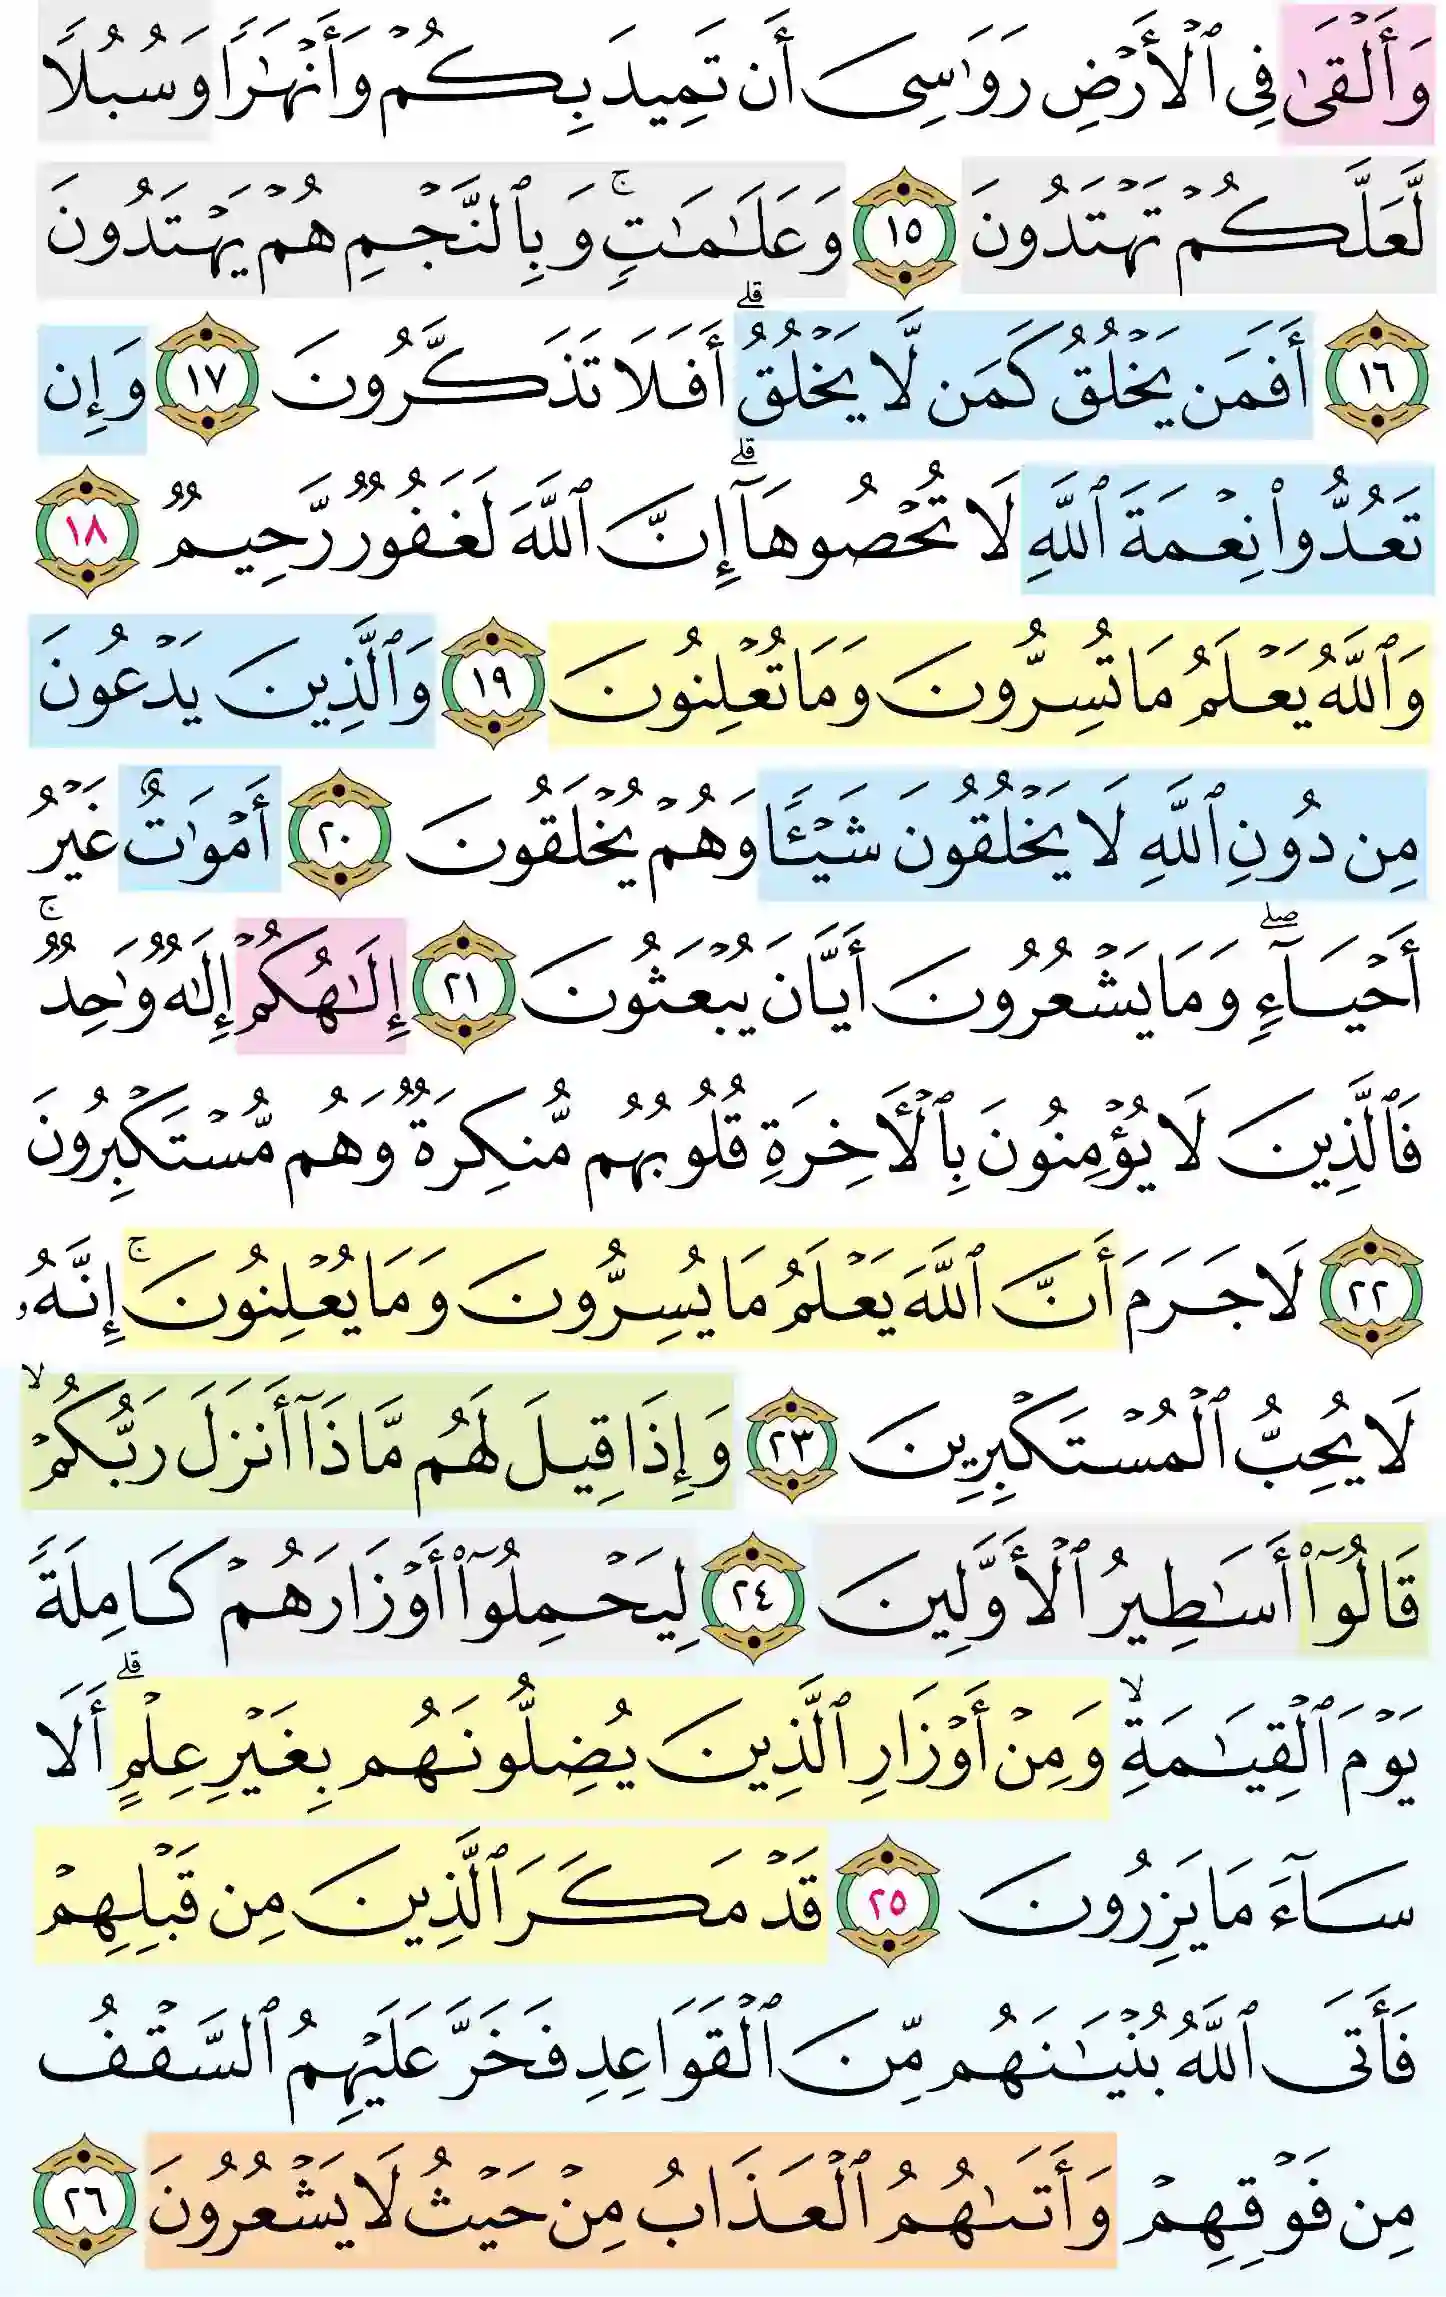 وَأَلۡقَىٰ فِي ٱلۡأَرۡضِ رَوَٰسِيَ أَن تَمِيدَ بِكُمۡ وَأَنۡهَٰرٗا وَسُبُلٗا
لَّعَلَّكُمۡ تَهۡتَدُونَ ١٥ وَعَلَٰمَٰتٖۚ وَبِٱلنَّجۡمِ هُمۡ يَهۡتَدُونَ
١٦ أَفَمَن يَخۡلُقُ كَمَن لَّا يَخۡلُقُۗ أَفَلَا تَذَكَّرُونَ ١٧ وَإِن
تَعُدُّواْ نِعۡمَةَ ٱللَّهِ لَا تُحۡصُوهَآۗ إِنَّ ٱللَّهَ لَغَفُورٞ رَّحِيمٞ ١٨
وَٱللَّهُ يَعۡلَمُ مَا تُسِرُّونَ وَمَا تُعۡلِنُونَ ١٩ وَٱلَّذِينَ يَدۡعُونَ
مِن دُونِ ٱللَّهِ لَا يَخۡلُقُونَ شَيۡـٔٗا وَهُمۡ يُخۡلَقُونَ ٢٠ أَمۡوَٰتٌ غَيۡرُ
أَحۡيَآءٖۖ وَمَا يَشۡعُرُونَ أَيَّانَ يُبۡعَثُونَ ٢١ إِلَٰهُكُمۡ إِلَٰهٞ وَٰحِدٞۚ
فَٱلَّذِينَ لَا يُؤۡمِنُونَ بِٱلۡأٓخِرَةِ قُلُوبُهُم مُّنكِرَةٞ وَهُم مُّسۡتَكۡبِرُونَ
٢٢ لَا جَرَمَ أَنَّ ٱللَّهَ يَعۡلَمُ مَا يُسِرُّونَ وَمَا يُعۡلِنُونَۚ إِنَّهُۥ
لَا يُحِبُّ ٱلۡمُسۡتَكۡبِرِينَ ٢٣ وَإِذَا قِيلَ لَهُم مَّاذَآ أَنزَلَ رَبُّكُمۡ ۙ
قَالُوٓاْ أَسَٰطِيرُ ٱلۡأَوَّلِينَ ٢٤ لِيَحۡمِلُوٓاْ أَوۡزَارَهُمۡ كَامِلَةٗ
يَوۡمَ ٱلۡقِيَٰمَةِ ۙ وَمِنۡ أَوۡزَارِ ٱلَّذِينَ يُضِلُّونَهُم بِغَيۡرِ عِلۡمٍۗ أَلَا
سَآءَ مَا يَزِرُونَ ٢٥ قَدۡ مَكَرَ ٱلَّذِينَ مِن قَبۡلِهِمۡ
فَأَتَى ٱللَّهُ بُنۡيَٰنَهُم مِّنَ ٱلۡقَوَاعِدِ فَخَرَّ عَلَيۡهِمُ ٱلسَّقۡفُ
مِن فَوۡقِهِمۡ وَأَتَىٰهُمُ ٱلۡعَذَابُ مِنۡ حَيۡثُ لَا يَشۡعُرُونَ ٢٦